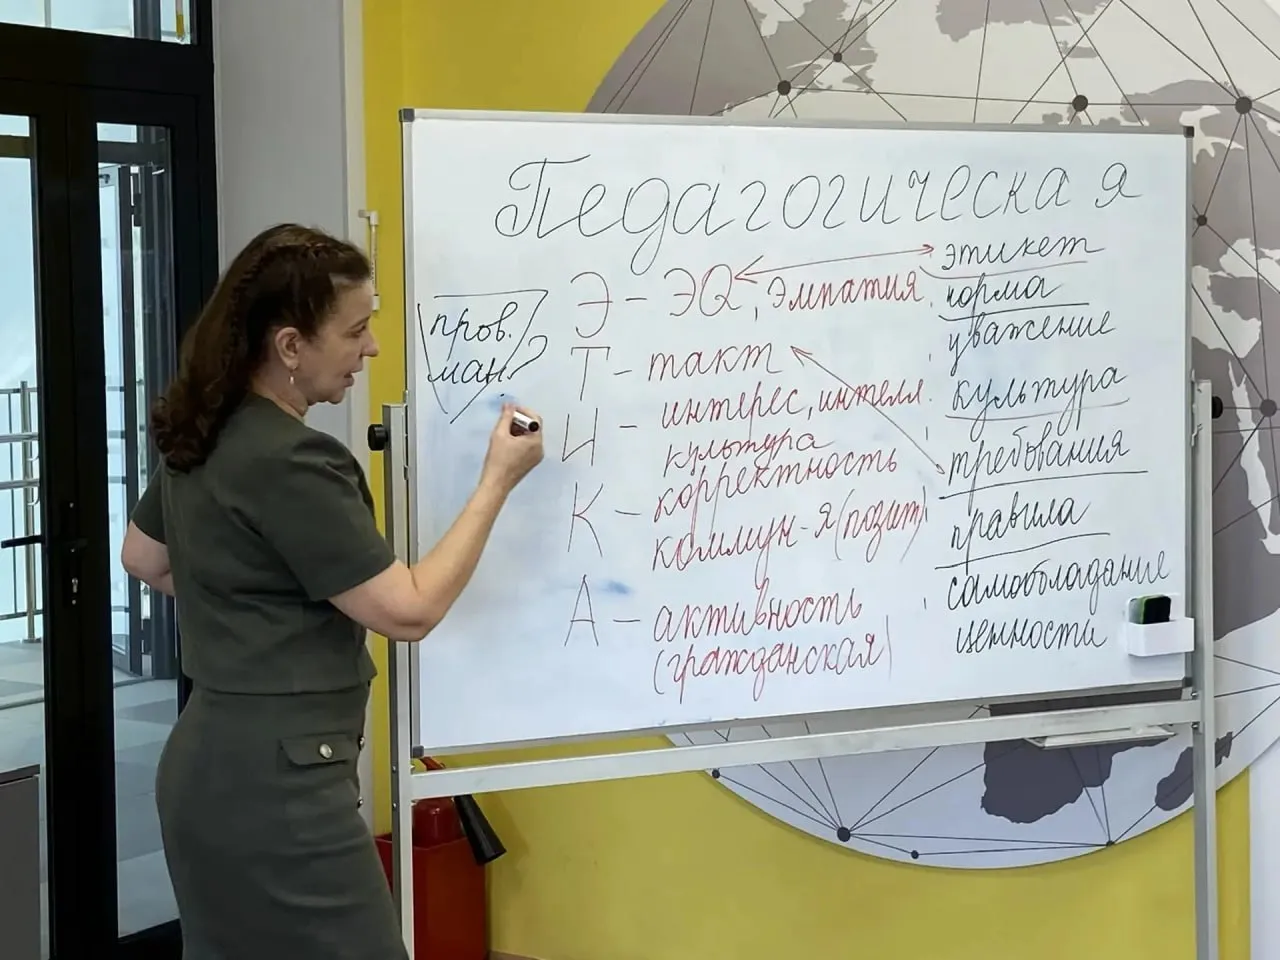 Педагогическая
Э – ЭQ, Эмпатия
Т – такт
И – интерес, интелл.
культура
К – корректность
коммун-я (позит)
А – активность
(гражданская)
пров.
ман.?
этикет
норма
уважение
культура
требования
правила
самообладание
ценности